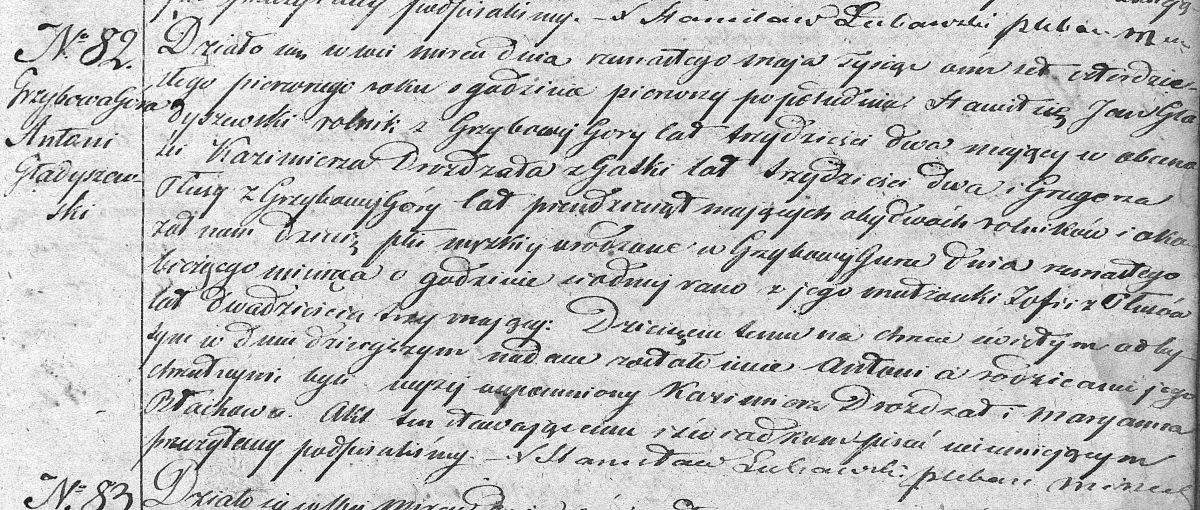 podpisaliśmy. – X Stanisław Łubawski pleban
N. 82.
Grzybowa Góra
Antoni
Gładyszew-
ski
Działo się w wsi Mircu dnia osmnastego maja tysiąc osm set czterdzie-
stego pierwszego roku o godzinie pierwszy popołudniu. Stawił się Jan Gła-
dyszewski rolnik z Grzybowy Góry lat trzydzieści dwa mający w obecno-
ści Kazimierza Drożdżała z Gatki lat trzydzieści dwa i Grzegorza
z Grzybowy Góry lat pięndziesiąt mających obydwóch rolników i oka-
zał nam dziecię płci męzkiy urodzone w Grzybowy Gurze dnia
bieżącego miesiąca o godzinie siodmy rano z jego małżonki Zofii z
lat dwadzieścia trzy mający. Dziecięciu temu na chrzcie świętym odby-
tym w dniu dzisieyszym nadane zostało imie Antoni a rodzicami jego
chrzestnymi byli wyzéj wspomniony Kazimierz Drożdżał i Maryanna
Płachowa. Akt ten stawaiącemu i świadkom pisać nieumiejącym
przeczytany podpisaliśmy. – X Stanisław Łubawski pleban
N. 83
Działo się